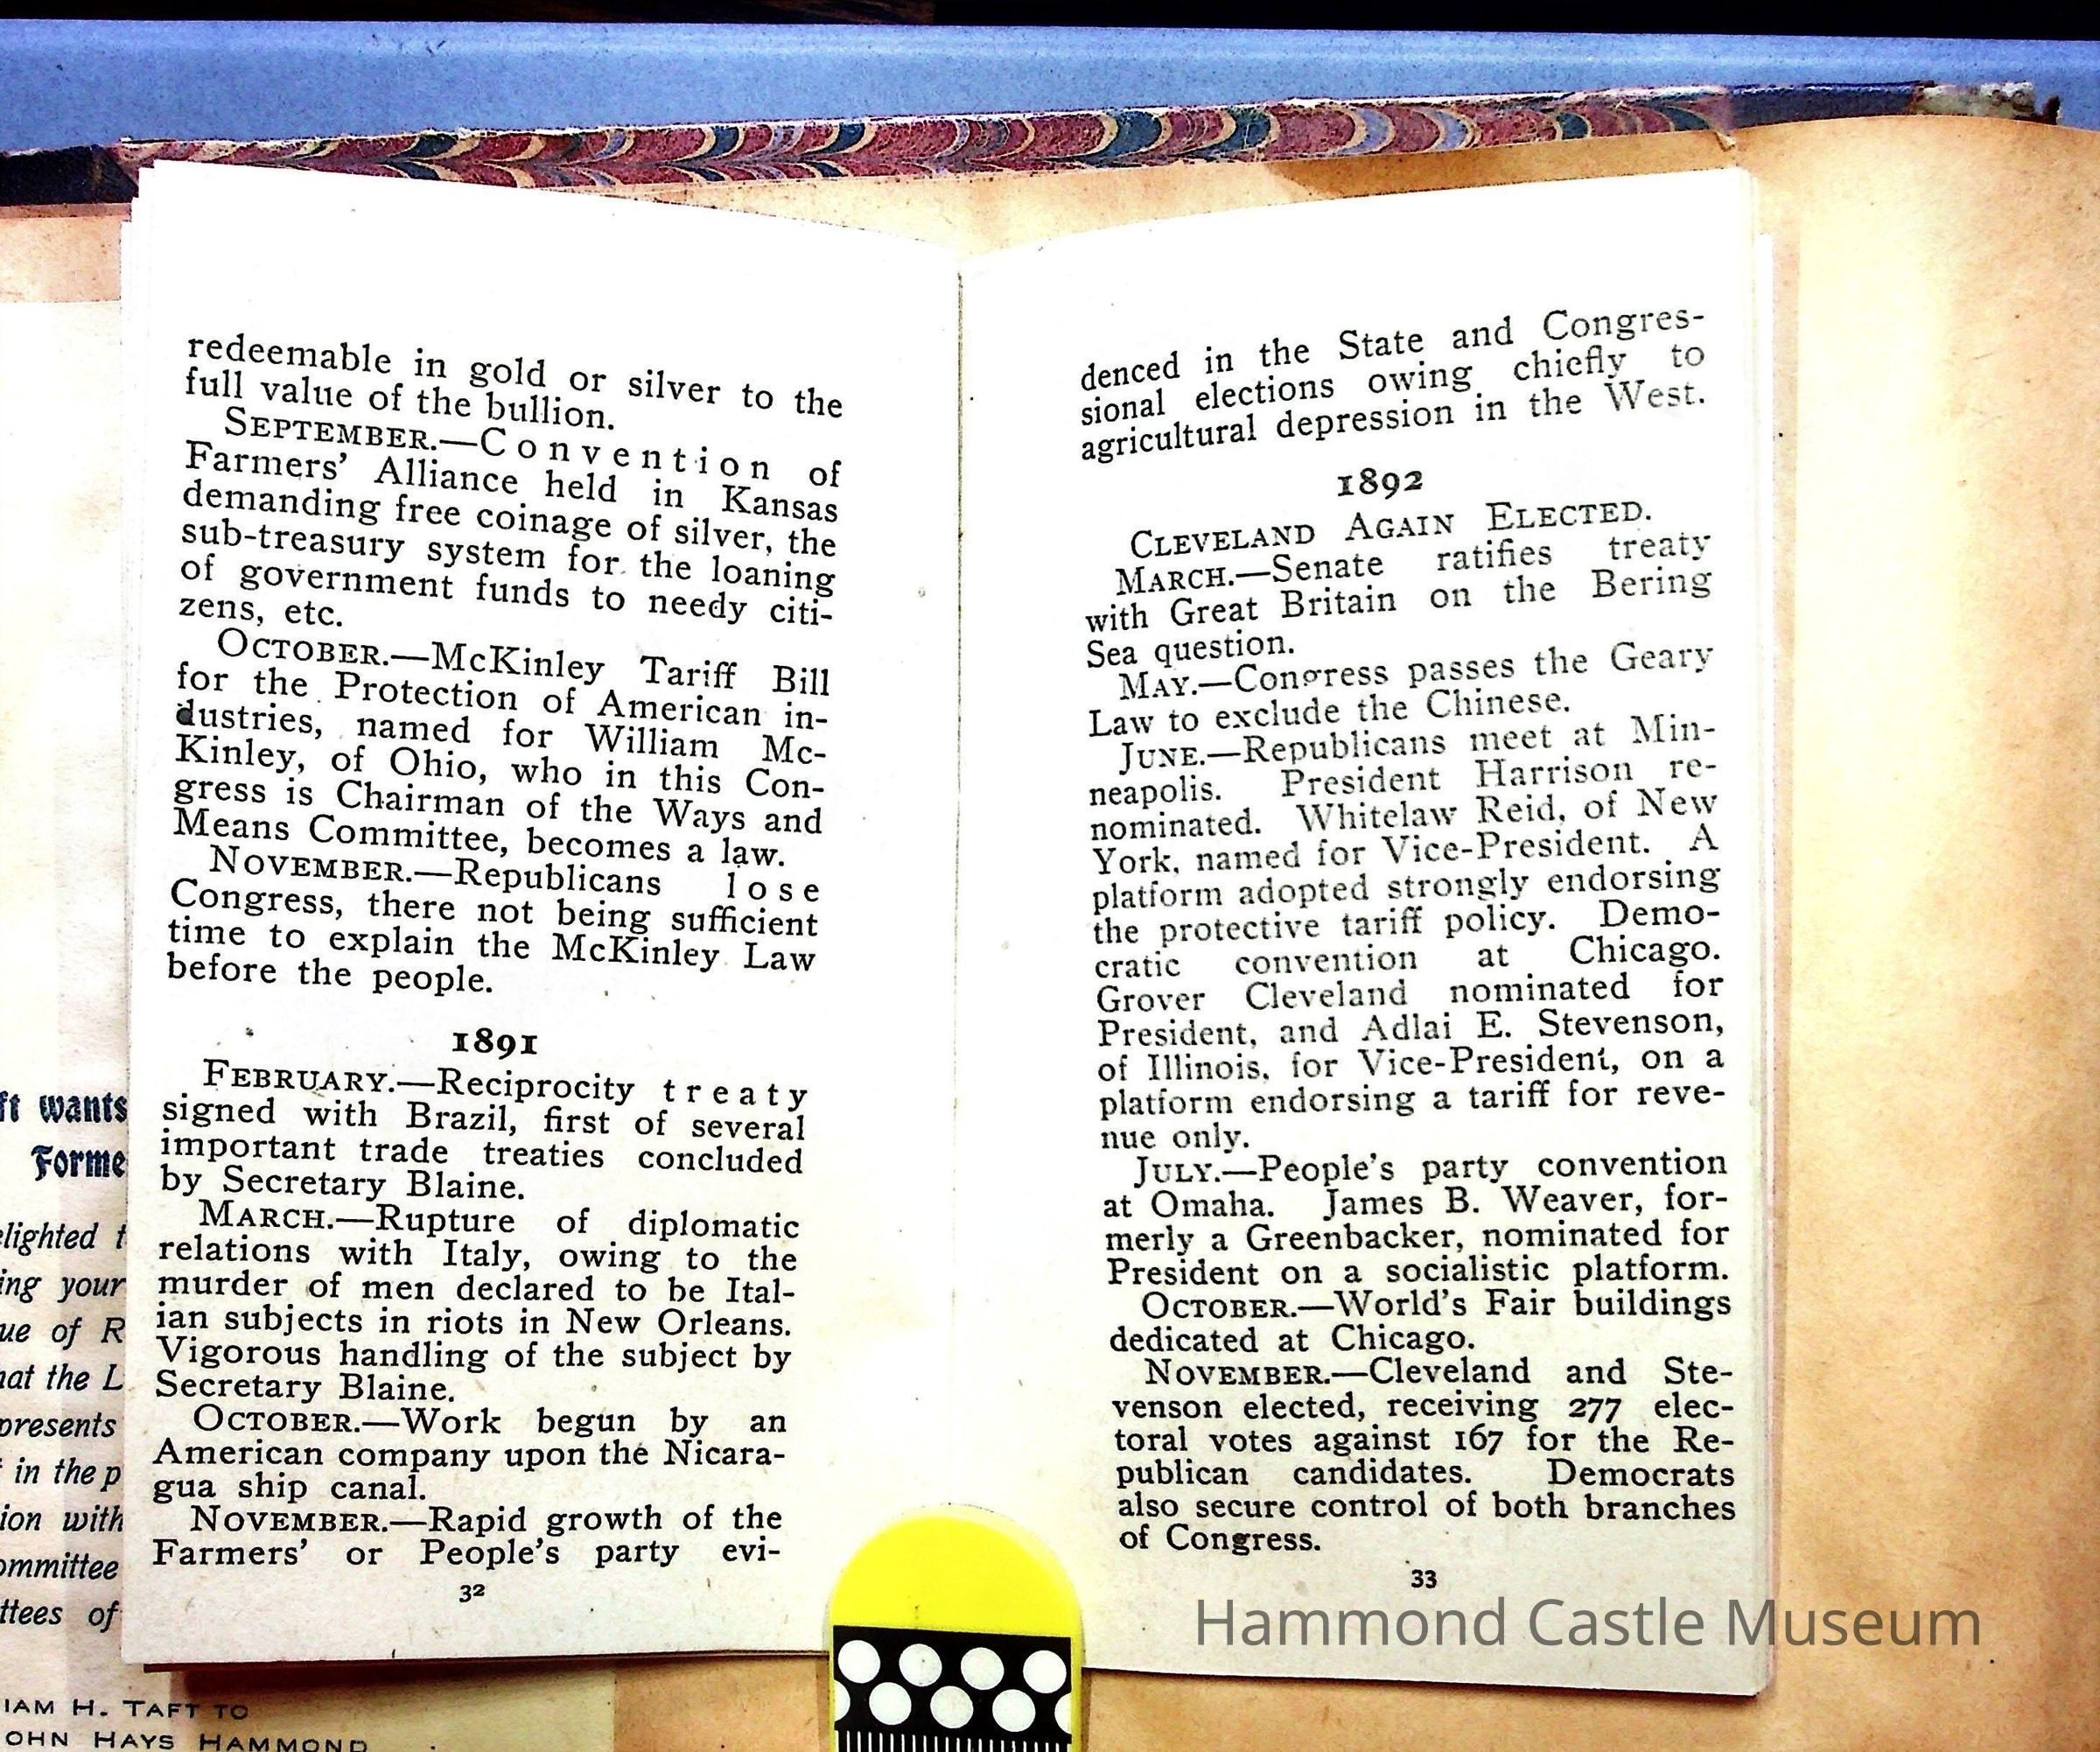 redeemable in gold or silver to the
full value of the bullion.
SEPTEMBER.—Convention of
Farmers' Alliance held in Kansas
demanding free coinage of silver, the
sub-treasury system for the loaning
of government funds to needy citi-
zens, etc.
OCTOBER.—McKinley Tariff Bill
for the Protection of American in-
dustries, named for William Mc-
Kinley, of Ohio, who in this Con-
gress is Chairman of the Ways and
Means Committee, becomes a law.
NOVEMBER.—Republicans lose
Congress, there not being sufficient
time to explain the McKinley Law
before the people.
1891
FEBRUARY.—Reciprocity treaty
signed with Brazil, first of several
important trade treaties concluded
by Secretary Blaine.
MARCH.—Rupture of diplomatic
relations with Italy, owing to the
murder of men declared to be Ital-
ian subjects in riots in New Orleans.
Vigorous handling of the subject by
Secretary Blaine.
OCTOBER.—Work begun by an
American company upon the Nicara-
gua ship canal.
NOVEMBER.—Rapid growth of the
Farmers' or People's party evi-
32
denced in the State and Congres-
sional elections owing chiefly to
agricultural depression in the West.
1892
CLEVELAND AGAIN ELECTED.
MARCH.—Senate ratifies treaty
with Great Britain on the Bering
Sea question.
MAY.—Congress passes the Geary
Law to exclude the Chinese.
JUNE.—Republicans meet at Min-
neapolis. President Harrison re-
nominated. Whitelaw Reid, of New
York, named for Vice-President. A
platform adopted strongly endorsing
the protective tariff policy. Demo-
cratic convention at Chicago.
Grover Cleveland nominated for
President, and Adlai E. Stevenson,
of Illinois, for Vice-President, on a
platform endorsing a tariff for reve-
nue only.
JULY.—People's party convention
at Omaha. James B. Weaver, for-
merly a Greenbacker, nominated for
President on a socialistic platform.
OCTOBER.—World's Fair buildings
dedicated at Chicago.
NOVEMBER.—Cleveland and Ste-
venson elected, receiving 277 elec-
toral votes against 167 for the Re-
publican candidates. Democrats
also secure control of both branches
of Congress.
33
wants
Forme
lighted
ing your
ue of R
at the L
presents
in the p
ion with
ommittee
ttees of
IAM H. TAFT TO
OHN HAYS HAMMOND
Hammond Castle Museum